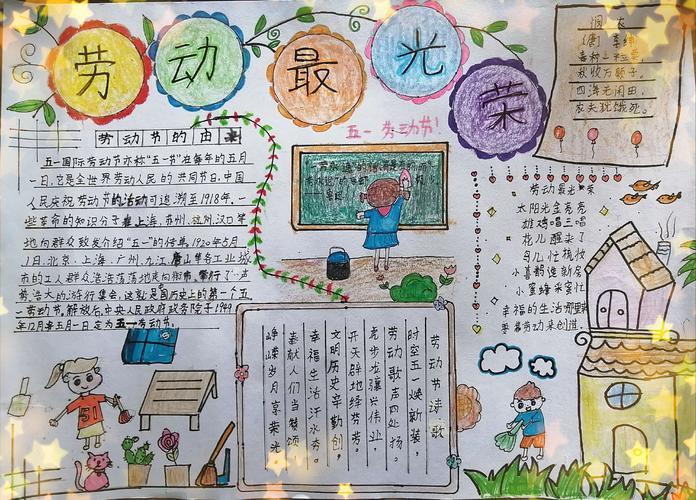 劳动最光荣
劳动节的由来
五一国际劳动节亦称"五一节"在每年的五月
一日,它是全世界劳动人民的共同节日,中国
人民庆祝劳动节的活动可追溯至1918年.一
些革命的知识分子在上海,苏州,汉口等
地向群众散发介绍"五一"的传单,1920年5月
1日,北京,上海,广州,九江,唐山等各工业城
市的工人群众浩浩荡荡地走向街市,举行了一声
势浩大的游行集会,这就是中国历史上的第一个五
一劳动节,解放后,中央人民政府政务院于1949
年12月将5月1日定为五一劳动节.
五一劳动节!
51
劳动节诗歌
时空五一焕新装,
劳动歌声四处扬。
虎步龙骧兴伟业,
开天辟地绎芳芳。
文明历史辛勤创,
幸福生活汗水夯。
奉献人们当赞颂
峥嵘岁月享荣光
悯农
(唐)李绅
春种一粒粟,
秋收万颗子,
四海无闲田,
农夫犹饿死。
劳动最光荣
太阳光金亮亮
雄鸡唱三唱
花儿醒来了
鸟儿忙梳妆
小喜鹊造新房
小蜜蜂采蜜忙
幸福的生活哪里来
要靠劳动来创造.